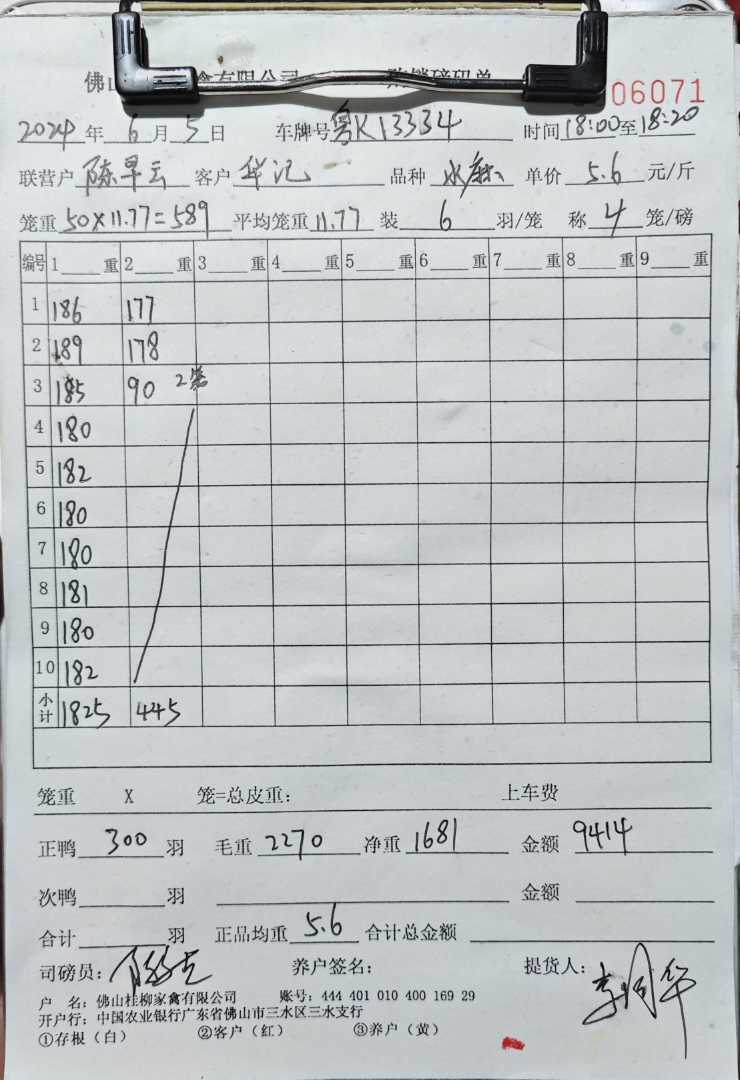 佛山 禽有限公司 购销磅码单
06071
2024年6月5日 车牌号粤K13334 时间18:00至18:20
联营户陈早云 客户华记 品种水 单价5.6元/斤
笼重50×11.77=589 平均笼重11.77 装6羽/笼 称4笼/磅
编号 1 重 2 重 3 重 4 重 5 重 6 重 7 重 8 重 9 重
1 186 177
2 189 178
3 185 90 2笼
4 180
5 182
6 180
7 180
8 181
9 180
10 182
小计 1825 445
笼重 X 笼=总皮重: 上车费
正鸭300羽 毛重2270 净重1681 金额9414
次鸭 羽 金额
合计 羽 正品均重5.6 合计总金额
司磅员: 养户签名: 提货人:
户 名: 佛山桂柳家禽有限公司 账号: 444 401 010 400 169 29
开户行: 中国农业银行广东省佛山市三水区三水支行
①存根(白) ②客户(红) ③养户(黄)